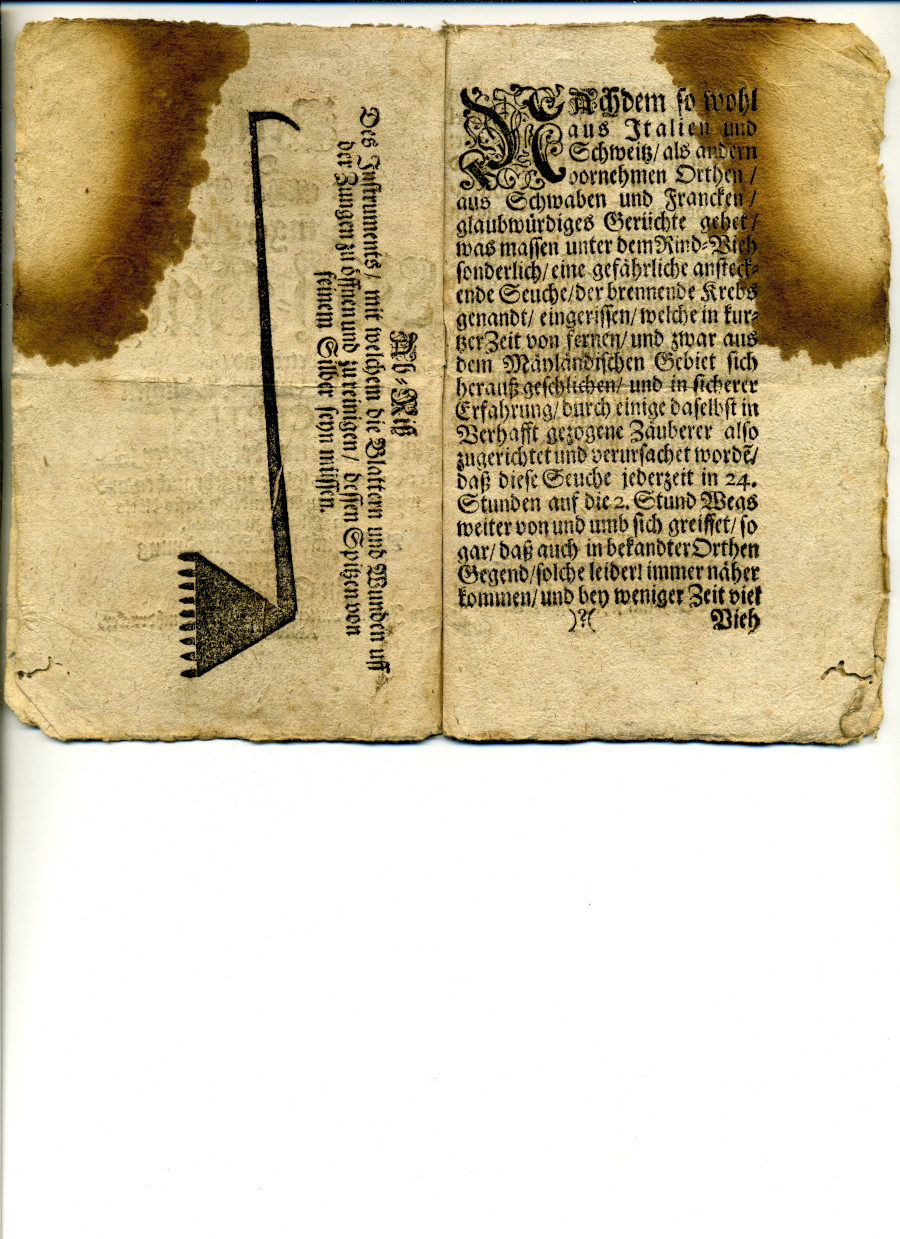 Ab-Riß
Des Instruments/ mit welchem die Blattern und Wunden uff
der Zungen zu öffnen und zu reinigen/ dessen Spitzen von
feinem Silber seyn müssen.
NAchdem so wohl
aus Italien und
Schweitz/ als andern
vornehmen Orthen/
aus Schwaben und Francken/
glaubwürdiges Gerüchte gehet/
was massen unter dem Rind-Vieh
sonderlich/ eine gefährliche ansteck-
ende Seuche/ der brennende Krebs
genandt/ eingerissen/ welche in kur-
tzer Zeit von fernen/ und zwar aus
dem Mäyländischen Gebiet sich
herauß geschlichen/ und in sicherer
Erfahrung/ durch einige daselbst in
Verhafft gezogene Zäuberer also
zugerichtet und verursachet wordẽ/
daß diese Seuche jederzeit in 24.
Stunden auf die 2. Stund Wegs
weiter von und umb sich greiffet/ so
gar/ daß auch in bekandter Orthen
Gegend/ solche leider! immer näher
kommen/ und bey weniger Zeit viel
)?( Vieh